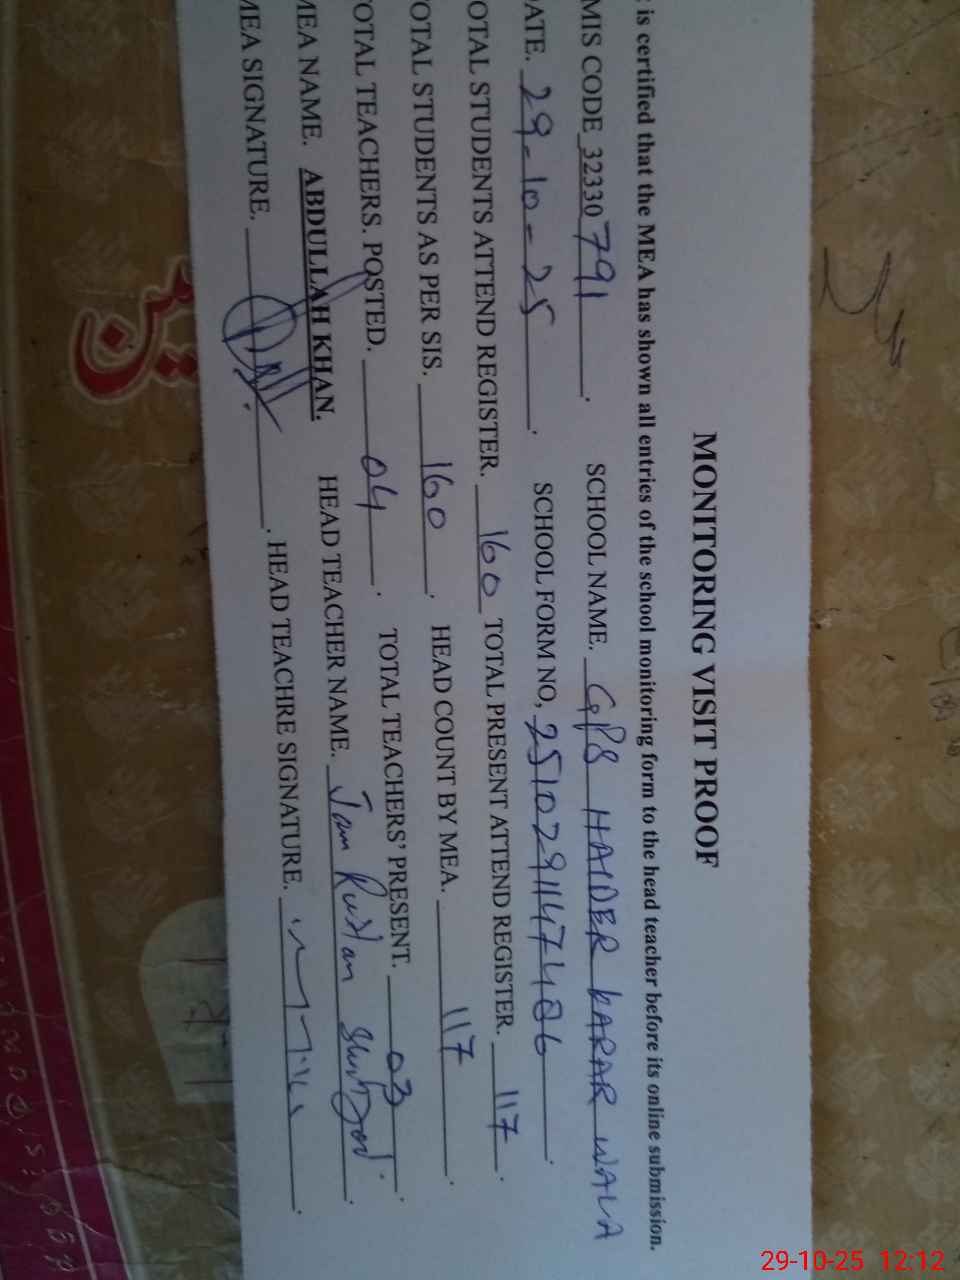 MONITORING VISIT PROOF
is certified that the MEA has shown all entries of the school monitoring form to the head teacher before its online submission.
MIS CODE 32330791. SCHOOL NAME. GPS HAIDER KARAR WALA
DATE. 29-10-25. SCHOOL FORM NO, 25102911474086.
OTAL STUDENTS ATTEND REGISTER. 160 TOTAL PRESENT ATTEND REGISTER. 117.
OTAL STUDENTS AS PER SIS. 160. HEAD COUNT BY MEA. 117.
OTAL TEACHERS. POSTED. 04. TOTAL TEACHERS' PRESENT. 03.
MEA NAME. ABDULLAH KHAN. HEAD TEACHER NAME. Jam
MEA SIGNATURE. HEAD TEACHIRE SIGNATURE.
29-10-25 12:12